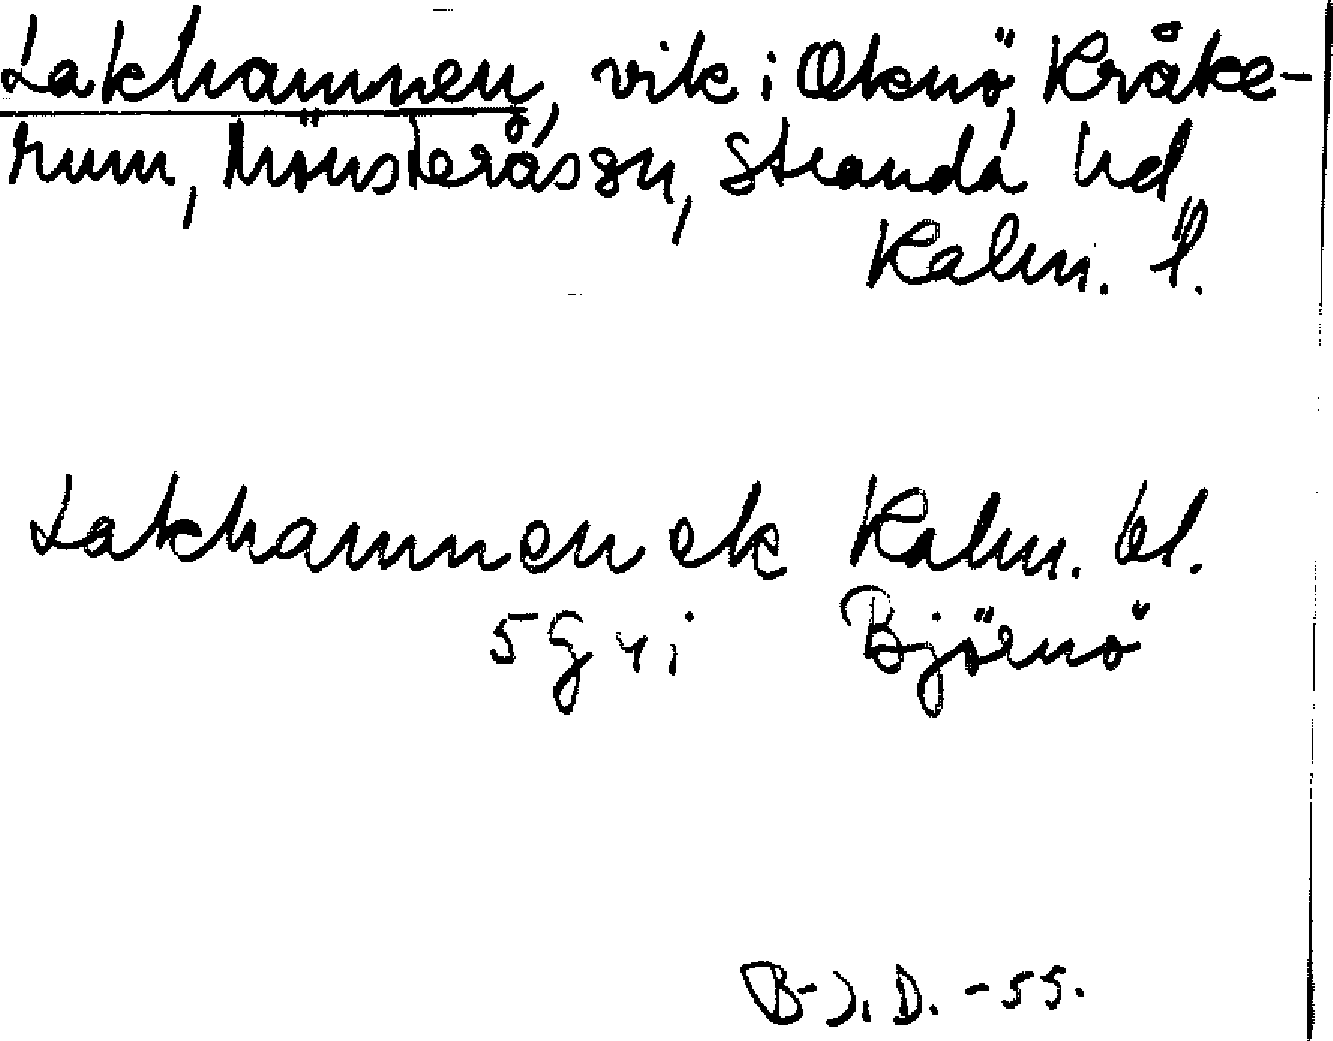 Lakhamnen, vik i Oknö, Kråke-
rum, Mönsterås sn, Stranda hd,
Kalm. l.
Lakhamnen ek Kalm. bl.
5 G y i Björnö
B-J. D. -55.